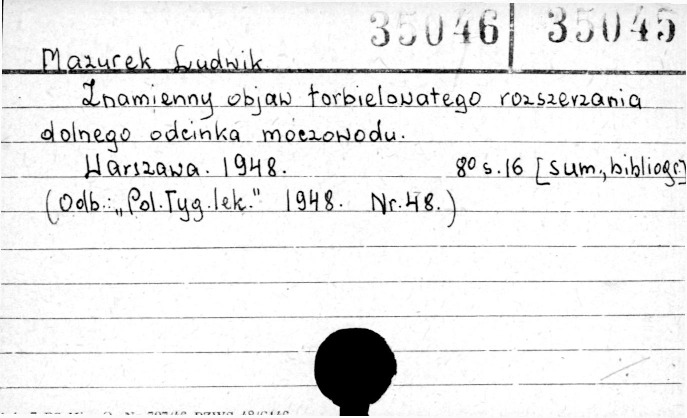 35046 | 35045
Mazurek Ludwik
Znamienny objaw torbielowatego rozszerzania
dolnego odcinka moczowodu.
Warszawa. 1948. 8º s.16 [sum., bibliogr.]
(Odb.: „Pol.Tyg.lek." 1948. Nr.48.)